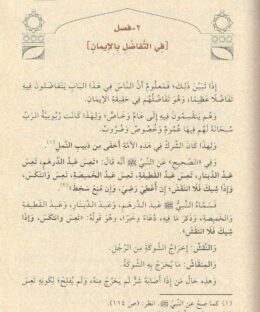 ٢- فصل
[في التَّفاضُلِ بِالإيمانِ]
إِذَا تَبَيَّنَ ذَلِكَ؛ فَمَعْلُومٌ أَنَّ النَّاسَ فِي هَذَا البَابِ يَتَفَاضَلُونَ فِيهِ
تَفَاضُلًا عَظِيمًا، وَهُوَ تَفَاضُلُهُمْ فِي حَقِيقَةِ الإِيمَانِ.
وَهُمْ يَنْقَسِمُونَ فِيهِ إِلَى عَامٍّ وَخَاصٍّ؛ وَلِهَذَا كَانَتْ رُبُوبِيَّةُ الرَّبِّ
سُبْحَانَهُ لَهُمْ فِيهَا عُمُومٌ وَخُصُوصٌ وَضُرُوبٌ.
وَلِهَذَا كَانَ الشِّرْكُ فِي هَذِهِ الأُمَّةِ أَخْفَى مِن دَبِيبِ النَّمْلِ(١).
وَفِي «الصَّحِيحِ» عَنِ النَّبِيِّ ﷺ أَنَّهُ قَالَ: «تَعِسَ عَبْدُ الدِّرهَمِ، تَعِسَ
عَبْدُ الدِّينَارِ، تَعِسَ عَبْدُ القَطِيفَةِ، تَعِسَ عَبْدُ الخَمِيصَةِ، تَعِسَ وَانْتَكَسَ،
وَإِذَا شِيكَ فَلَا انْتَقَشَ؛ إِنْ أُعْطِيَ رَضِيَ، وَإِن مُنِعَ سَخِطَ»(٢).
فَسَمَّاهُ النَّبِيُّ ﷺ عَبْدَ الدِّرهَمِ، وَعَبْدَ الدِّينَارِ، وَعَبْدَ القَطِيفَةِ
وَالخَمِيصَةِ، وَذَكَرَ مَا فِيهِ، دُعَاءً وَخَبَرًا، وَهُوَ قَوْلُهُ: «تَعِسَ وَانْتَكَسَ، وَإِذَا
شِيكَ فَلَا انْتَقَشَ».
وَالنَّقْشُ: إِخرَاجُ الشَّوكَةِ مِنَ الرِّجْلِ.
وَالمِنْقَاشُ: مَا يُخْرَجُ بِهِ الشَّوكَةُ.
وَهَذِهِ حَالُ مَن إِذَا أَصَابَهُ شَرٌّ لَم يَخْرُجْ مِنْهُ، وَلَم يُفْلِحْ؛ لِكَونِهِ تَعِسَ
(١) كما صحَّ عن النبي ﷺ. انظر: (ص ١١٤).